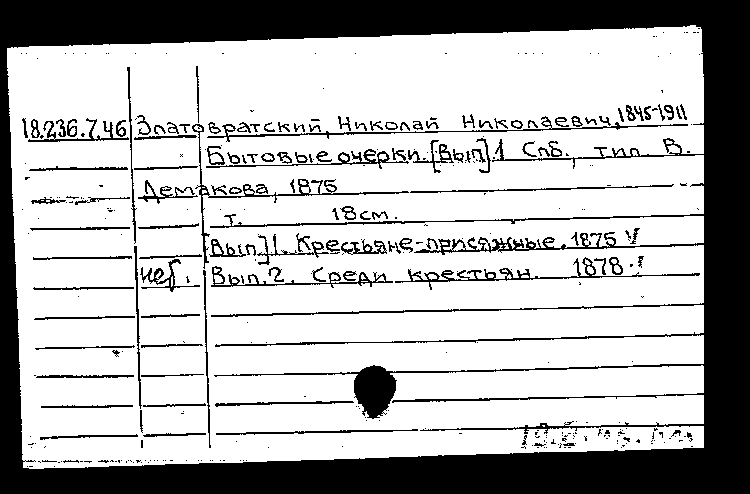 18.236.7.46 Златовратский, Николай Николаевич, 1845-1911
Бытовые очерки. [Вып] 1 Спб., тип. В.
Демакова, 1875
т. 18см.
[Вып] 1. Крестьяне-присяжные. 1875 V
Вып. 2. Среди крестьян. 1878.